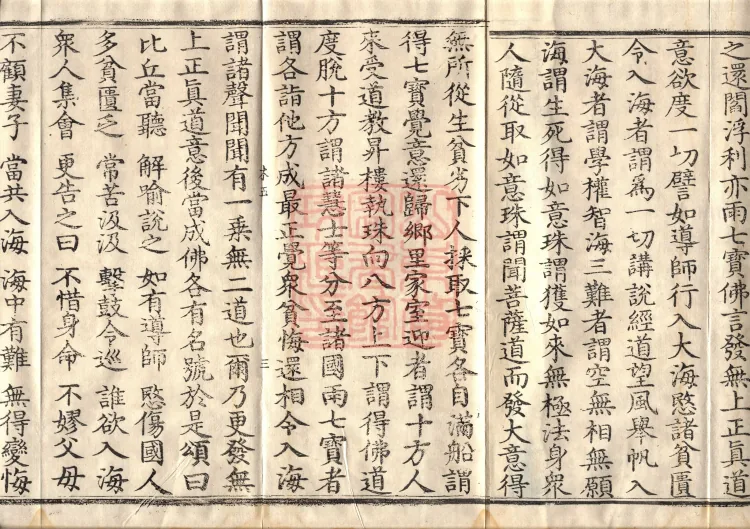 之還閻浮利亦雨七寶佛言發無上正真道
意欲度一切譬如導師行入大海愍諸貧匱
令入海者謂為一切講說經道望風舉帆入
大海者謂學權智海三難者謂空無相無願
海謂生死得如意珠謂獲如來無極法身眾
人隨從取如意珠謂聞菩薩道而發大意得
無所從生貧劣下人採取七寶各自滿船謂
得七寶覺意還歸鄉里家室迎者謂十方人
來受道教昇樓執珠向八方上下謂得佛道
度脫十方謂諸慧士等分至諸國雨七寶者
謂各詣他方成最正覺眾貧悔還相令入海
謂諸聲聞聞有一乘無二道也爾乃更發無
上正真道意後當成佛各有名號於是頌曰
比丘當聽 解喻說之 如有導師 愍傷國人
多貧匱乏 常苦汲汲 擊鼓令巡 誰欲入海
眾人集會 更告之曰 不惜身命 不嫪父母
不顧妻子 當共入海 海中有難 無得變悔
三